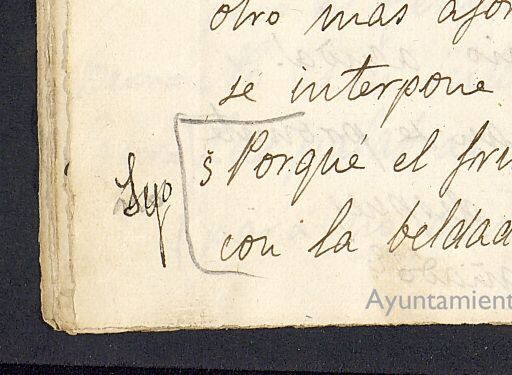 otro mas afor
se interpone
¿Porqué el fru
con la beldad
Ayuntamient